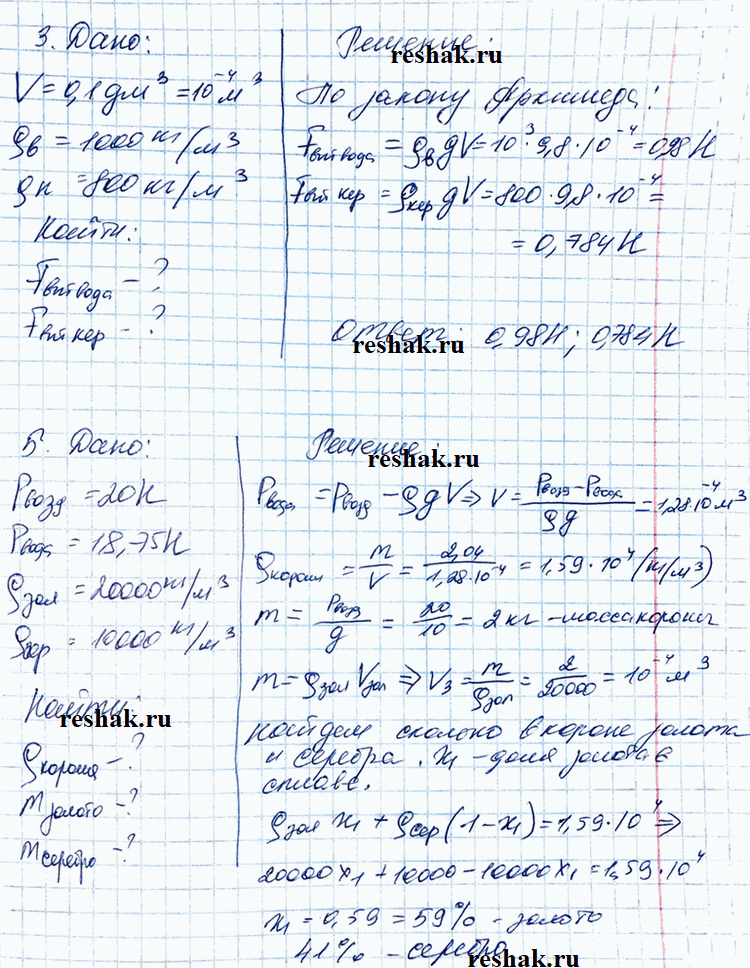 3. Дано:
V = 0,1 дм³ = 10⁻⁴ м³
ρв = 1000 кг/м³
ρк = 800 кг/м³
Найти:
Fвыт вода - ?
Fвыт кер - ?
Решение:
reshak.ru
По закону Архимеда:
Fвыт вода = ρв gV = 10³·9,8·10⁻⁴ = 0,98 Н
Fвыт кер = ρкер gV = 800·9,8·10⁻⁴ =
= 0,784 Н
Ответ: 0,98 Н; 0,784 Н
reshak.ru
5. Дано:
Pвозд = 20 Н
Pвода = 18,75 Н
ρзол = 20000 кг/м³
ρсер = 10000 кг/м³
Найти:
reshak.ru
ρкорона - ?
mзолото - ?
mсеребро - ?
Решение:
reshak.ru
Pвода = Pвозд - ρgV ⇒ V = (Pвозд - Pвода)/ρg = 1,28·10⁻⁴ м³
ρкороны = m/V = 2,04/1,28·10⁻⁴ = 1,59·10⁴ (кг/м³)
m = Pвозд/g = 20/10 = 2 кг - масса короны
m = ρзол Vзол ⇒ Vз = m/ρзол = 2/20000 = 10⁻⁴ м³
найдем сколько в короне золота
и серебра. x₁ - доля золота в
сплаве.
ρзол x₁ + ρсер (1 - x₁) = 1,59·10⁴ ⇒
20000x₁ + 10000 - 10000x₁ = 1,59·10⁴
x₁ = 0,59 = 59% - золото
41% - серебро
reshak.ru